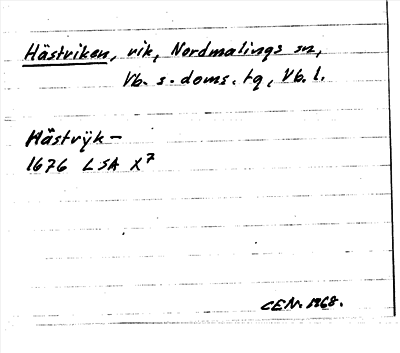 Hästviken, vik, Nordmalings sn,
Vb. s. doms. tg, Vb. l.
Hästvÿk-
1676 LSA X7
CEN. 1968.